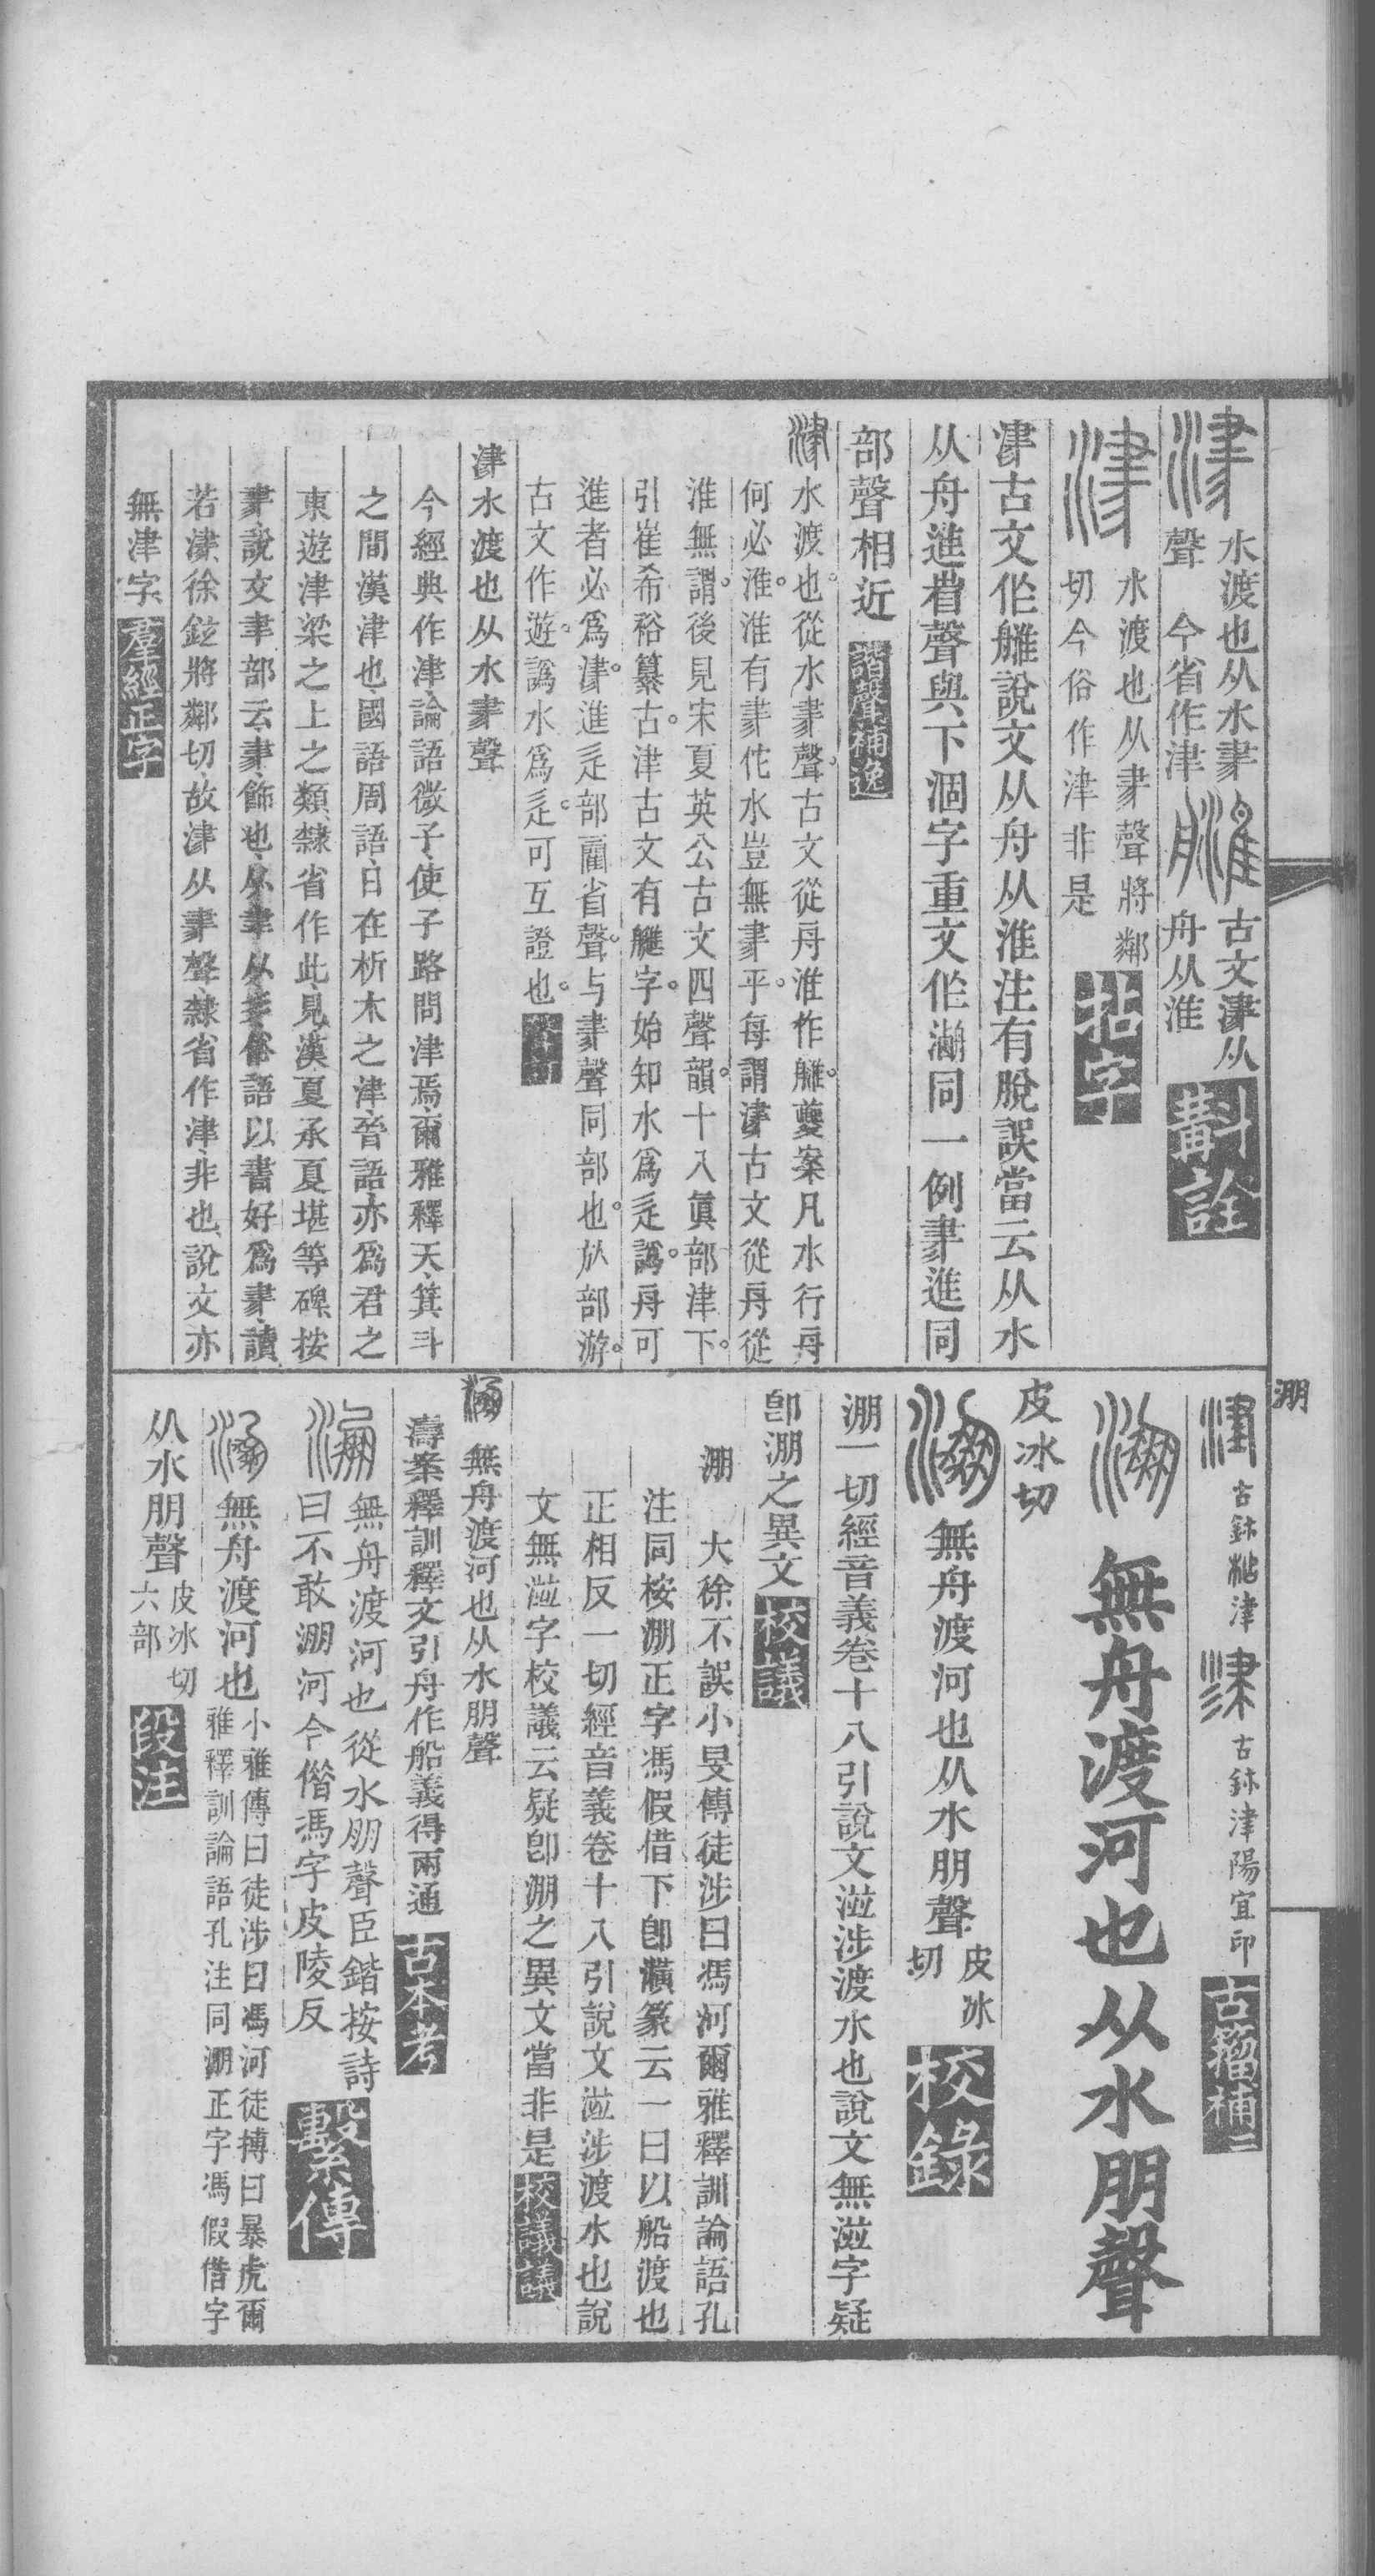 水渡也从水𦘔
聲　今省作津
古文𣸁从
舟从淮
斠詮
水渡也从𦘔聲將鄰
切今俗作津非是
拈字
𣸁古文作𦪌說文从舟从淮注有脫誤當云从水
从舟進省聲與下涸字重文作㶏同一例𦘔進同
部聲相近
諧聲補逸
水渡也從水𦘔聲古文從舟淮作𦪌夔案凡水行舟
何必淮淮有𦘔佗水豈無𦘔乎每謂𣸁古文從舟從
淮無謂後見宋夏英公古文四聲韻十八眞部津下
引崔希裕纂古津古文有𦪌字始知水爲辵譌舟可
進者必爲𣸁進辵部閵省聲与𦘔聲同部也㫃部游
古文作遊譌水爲辵可互證也
𣸁水渡也从水𦘔聲
今經典作津論語微子使子路問津焉爾雅釋天箕斗
之間漢津也國語周語日在析木之津晉語亦爲君之
東遊津梁之上之類隸省作此見漢夏承夏堪等碑按
𦘔說文聿部云𦘔飾也从聿从彡俗語以書好爲𦘔讀
若𣸁徐鉉將鄰切故𣸁从𦘔聲隸省作津非也說文亦
無津字
羣經正字
古鉢津
古鉢津陽宜印
古籀補二
淜
無舟渡河也从水朋聲
皮冰切
無舟渡河也从水朋聲
皮冰
切
校錄
淜一切經音義卷十八引說文㴇涉渡水也說文無㴇字疑
卽淜之異文
校議
淜　大徐不誤小旻傳徒涉曰馮河爾雅釋訓論語孔
注同桉淜正字馮假借下卽㶇篆云一曰以船渡也
正相反一切經音義卷十八引說文㴇涉渡水也說
文無㴇字校議云疑卽淜之異文當非是
校議議
無舟渡河也从水朋聲
濤案釋訓釋文引舟作船義得兩通
古本考
無舟渡河也從水朋聲臣鍇按詩
曰不敢淜河今偕馮字皮陵反
繫傳
無舟渡河也
小雅傳曰徒涉曰馮河徒搏曰暴虎爾
雅釋訓論語孔注同淜正字馮假借字
从水朋聲
皮冰切
六部
段注